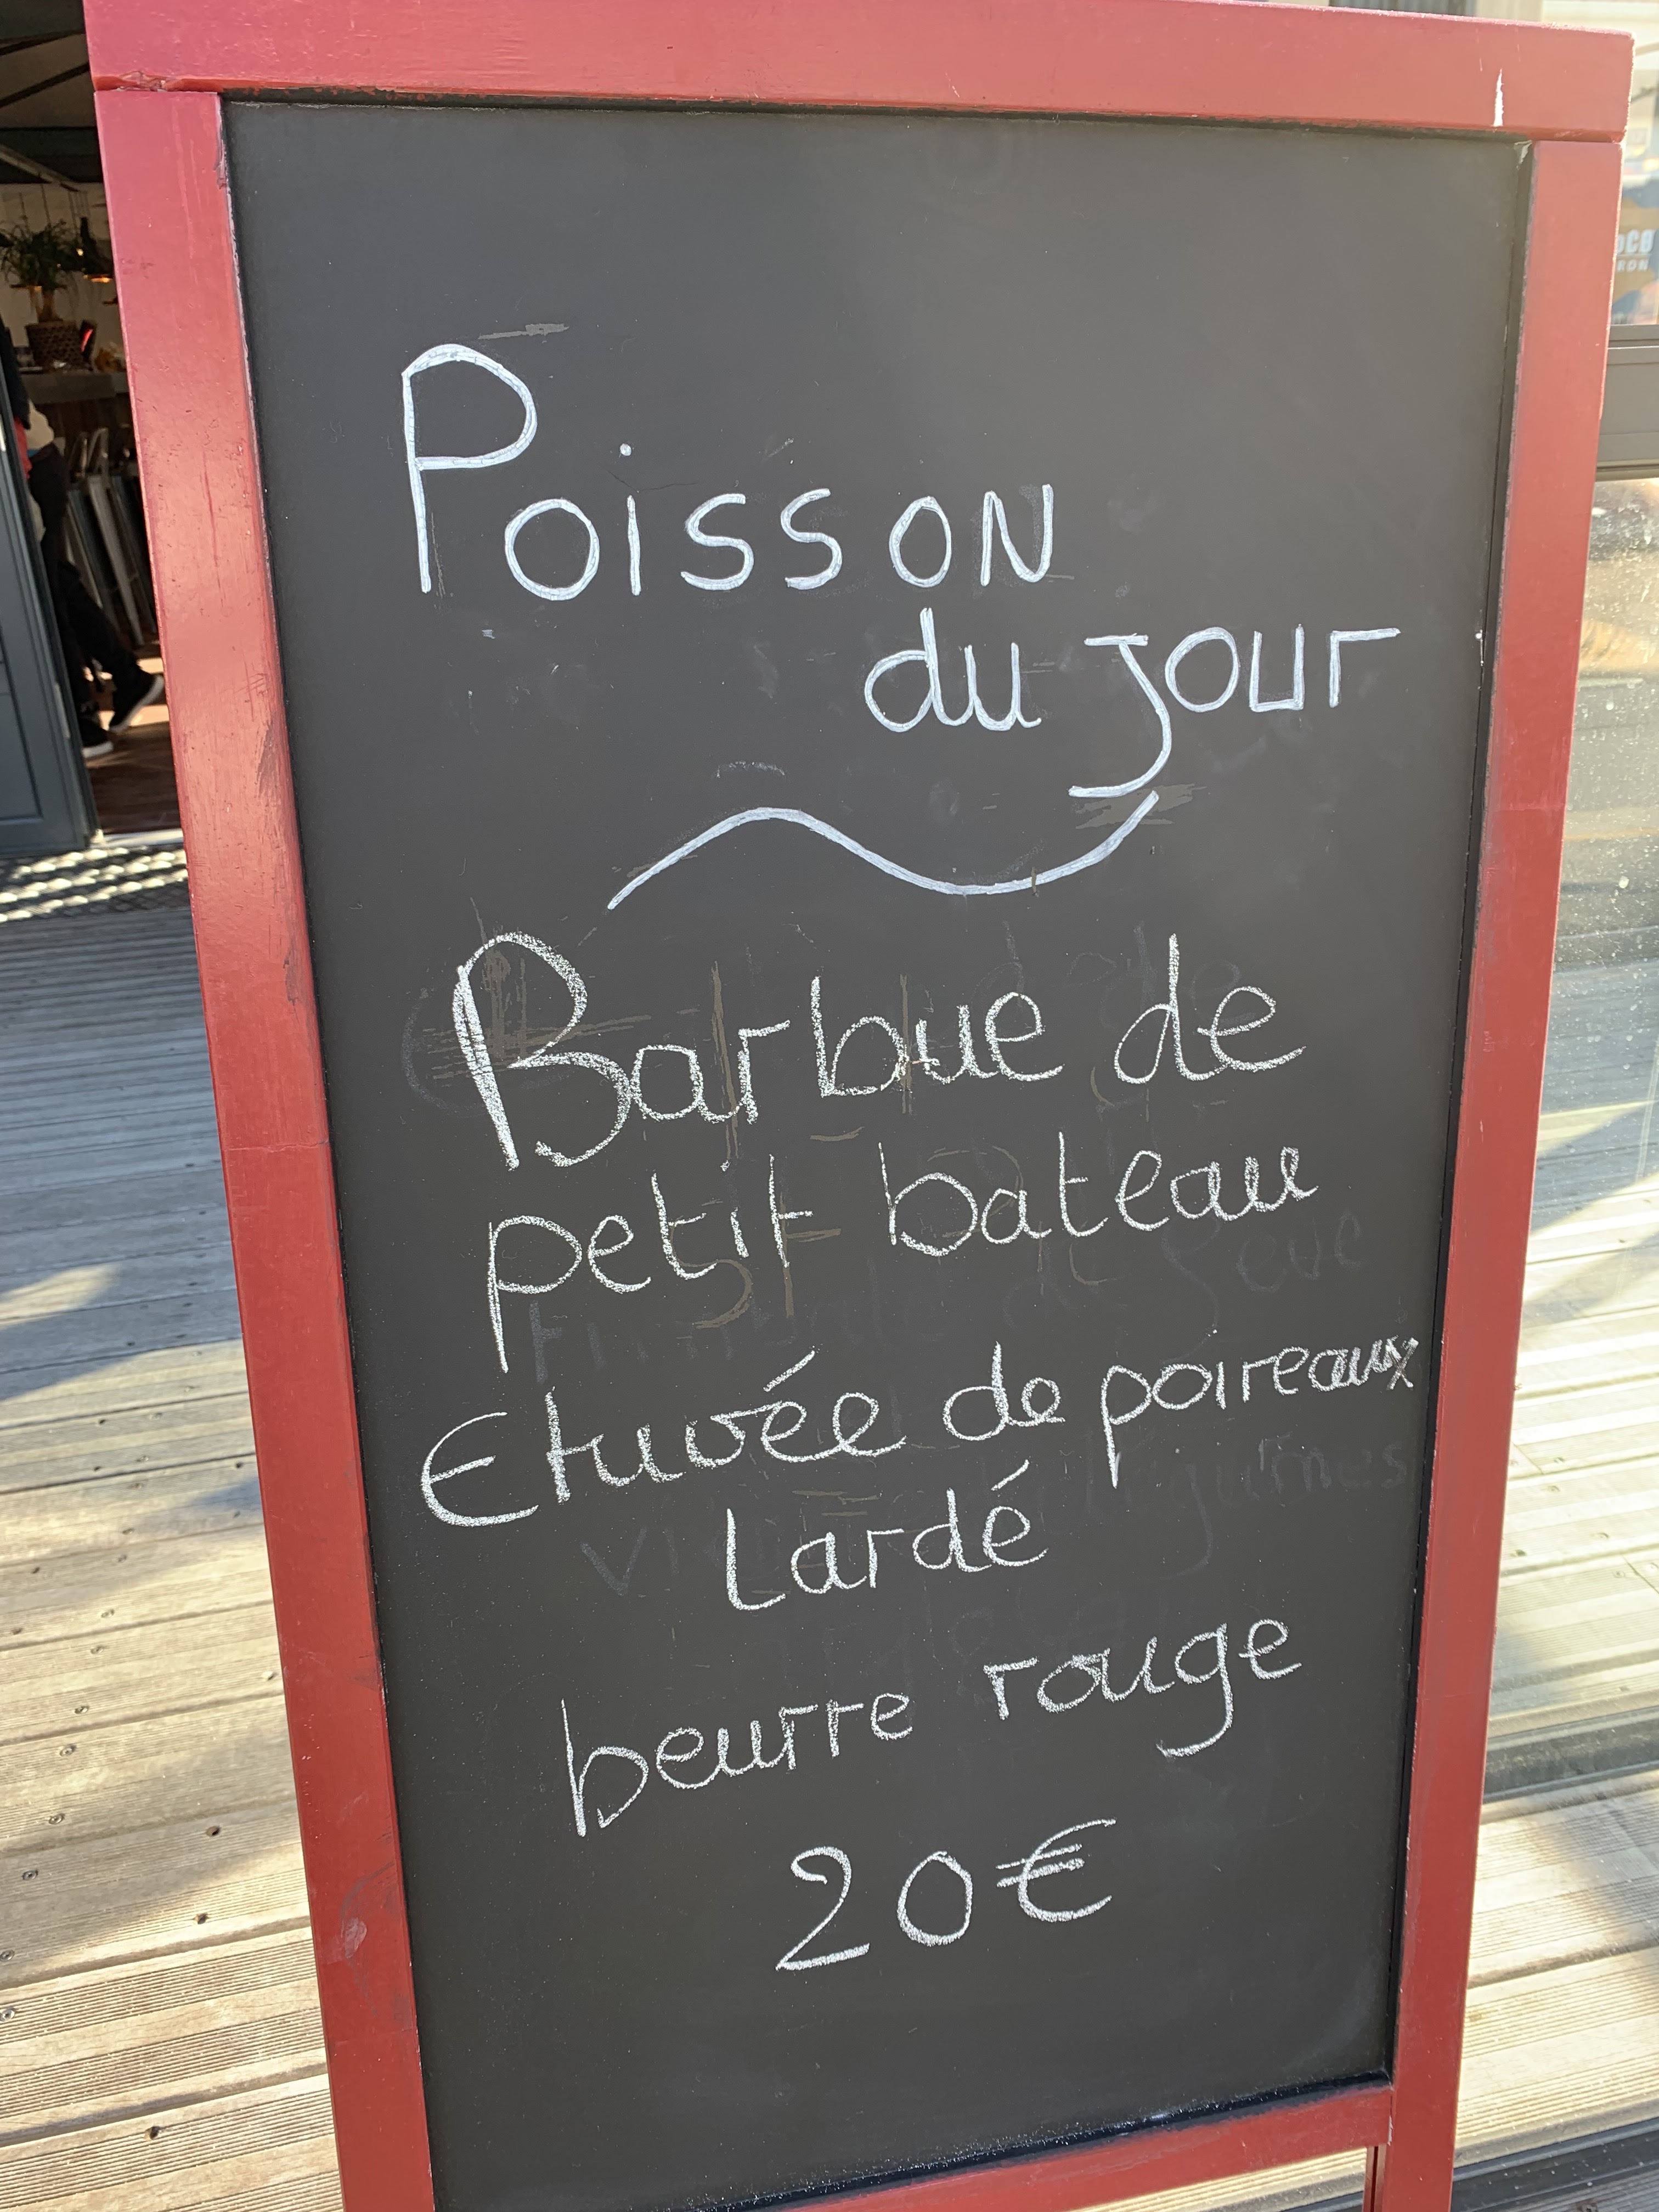 Poisson
du jour
Barbue de
petit bateau
Etuvée de poireaux
Lardé
beurre rouge
20€